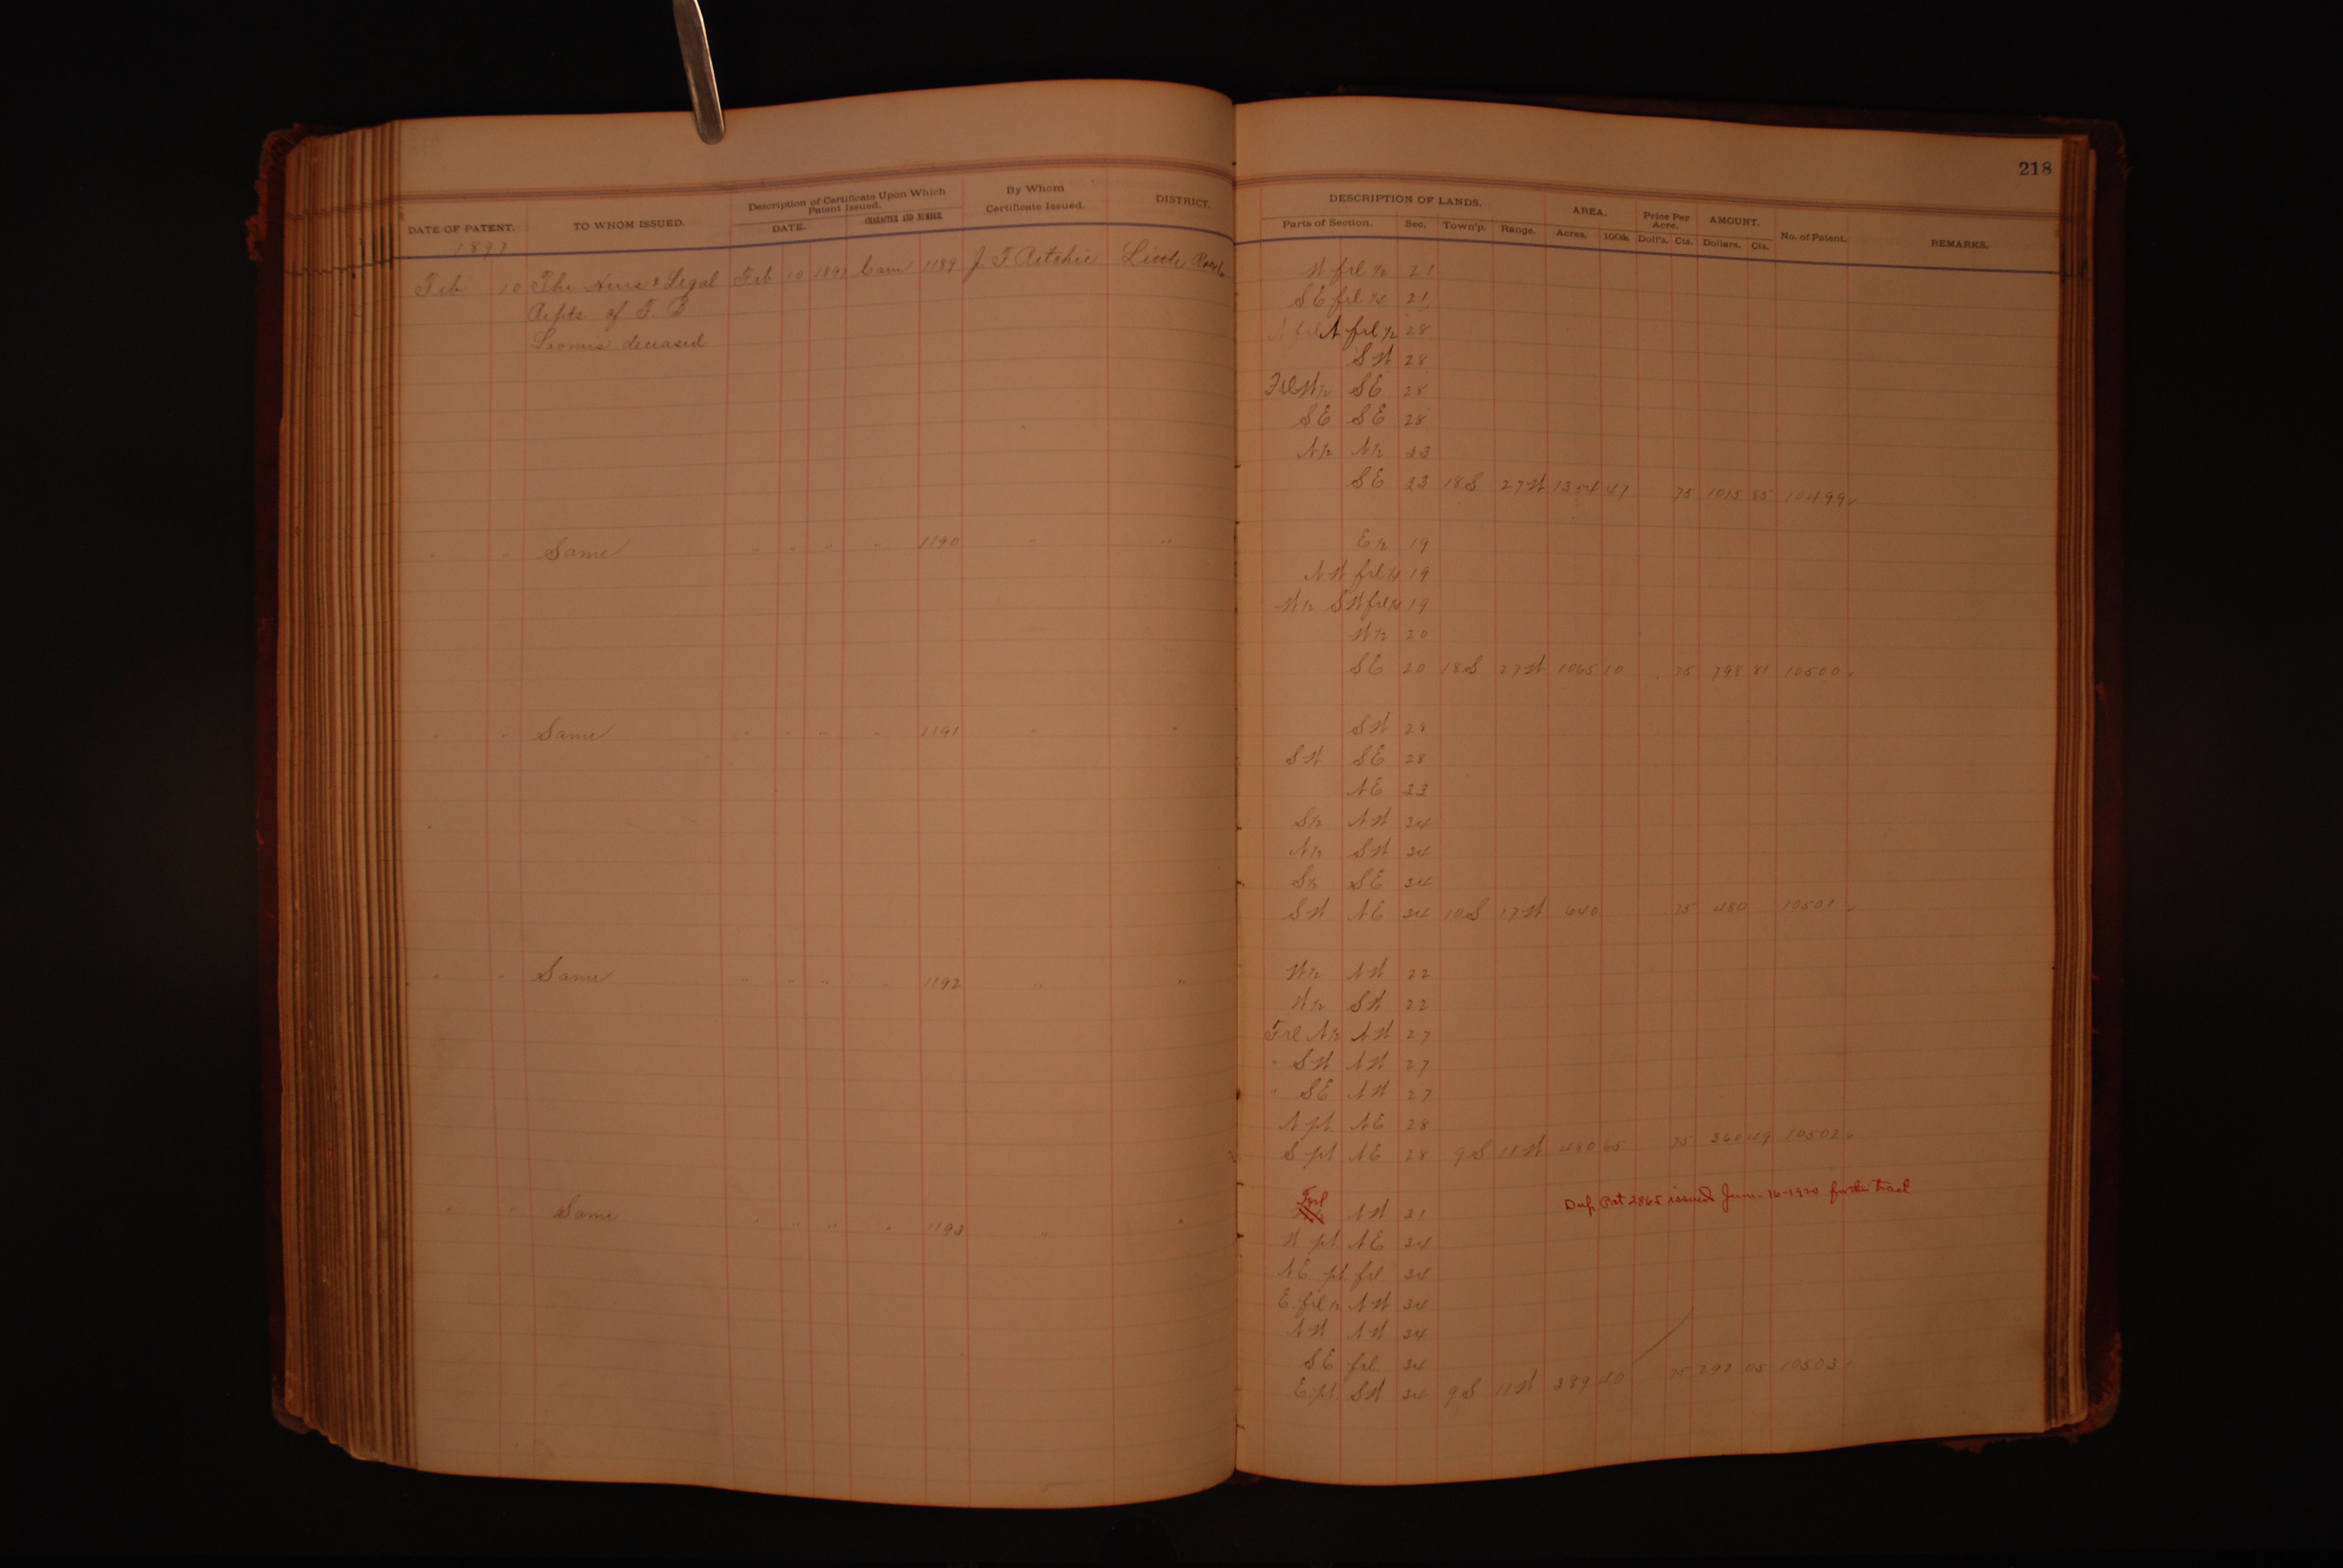 218
DATE OF PATENT. TO WHOM ISSUED. Description of Certificate Upon Which Patent Issued. DATE. CHARACTER AND NUMBER. By Whom Certificate Issued. DISTRICT. DESCRIPTION OF LANDS. Parts of Section. Sec. Town'p. Range. AREA. Acres. 100ths Price Per Acre. Doll's. Cts. AMOUNT. Dollars. Cts. No. of Patent. REMARKS.
1897
Feb 10 The Heirs & Legal Feb 10 1897 Cam 1189 J. F. Ritchie Little Rock W frl ½ 21
Repts of F. B. SE frl ¼ 21
Loomis deceased N frl ½ 28
SW 28
Frl W½ SE 28
SE SE 28
N½ N½ 33
SE 33 18S 27W 1354 47 75 1015 85 10499
" " Same " " " " 1190 " " E½ 19
NW frl ¼ 19
W½ SW frl ¼ 19
W½ 20
SE 20 18S 27W 1065 10 75 798 81 10500
" " Same " " " " 1191 " " SW 28
SW SE 28
NE 33
S½ NW 34
N½ SW 34
S½ SE 34
SW NE 34 10S 17W 640 75 480 10501
" " Same " " " " 1192 " " W½ NW 22
W½ SW 22
Frl N½ NW 27
" SW NW 27
" SE NW 27
N pt NE 28
S pt NE 28 9S 11W 480 65 75 360 49 10502
Dup Pat 2865 issued June 16-1920 for this tract
" " Same " " " " 1193 " " Frl NW 31
W pt NE 34
NE pt frl 34
E frl ½ NW 34
NW NW 34
SE frl 34
E pt SW 34 9S 11W 389 40 75 292 05 10503